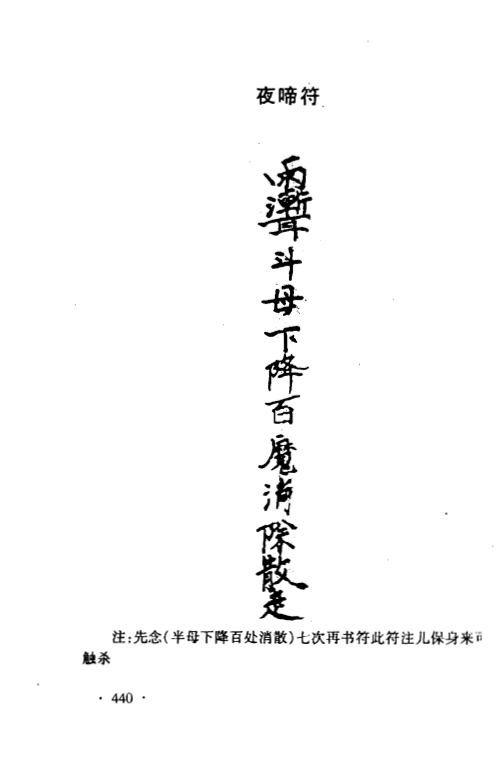 夜啼符
斗母下降百魔消除散
注:先念(半母下降百处消散)七次再书符此符注儿保身来可
触杀
·440·